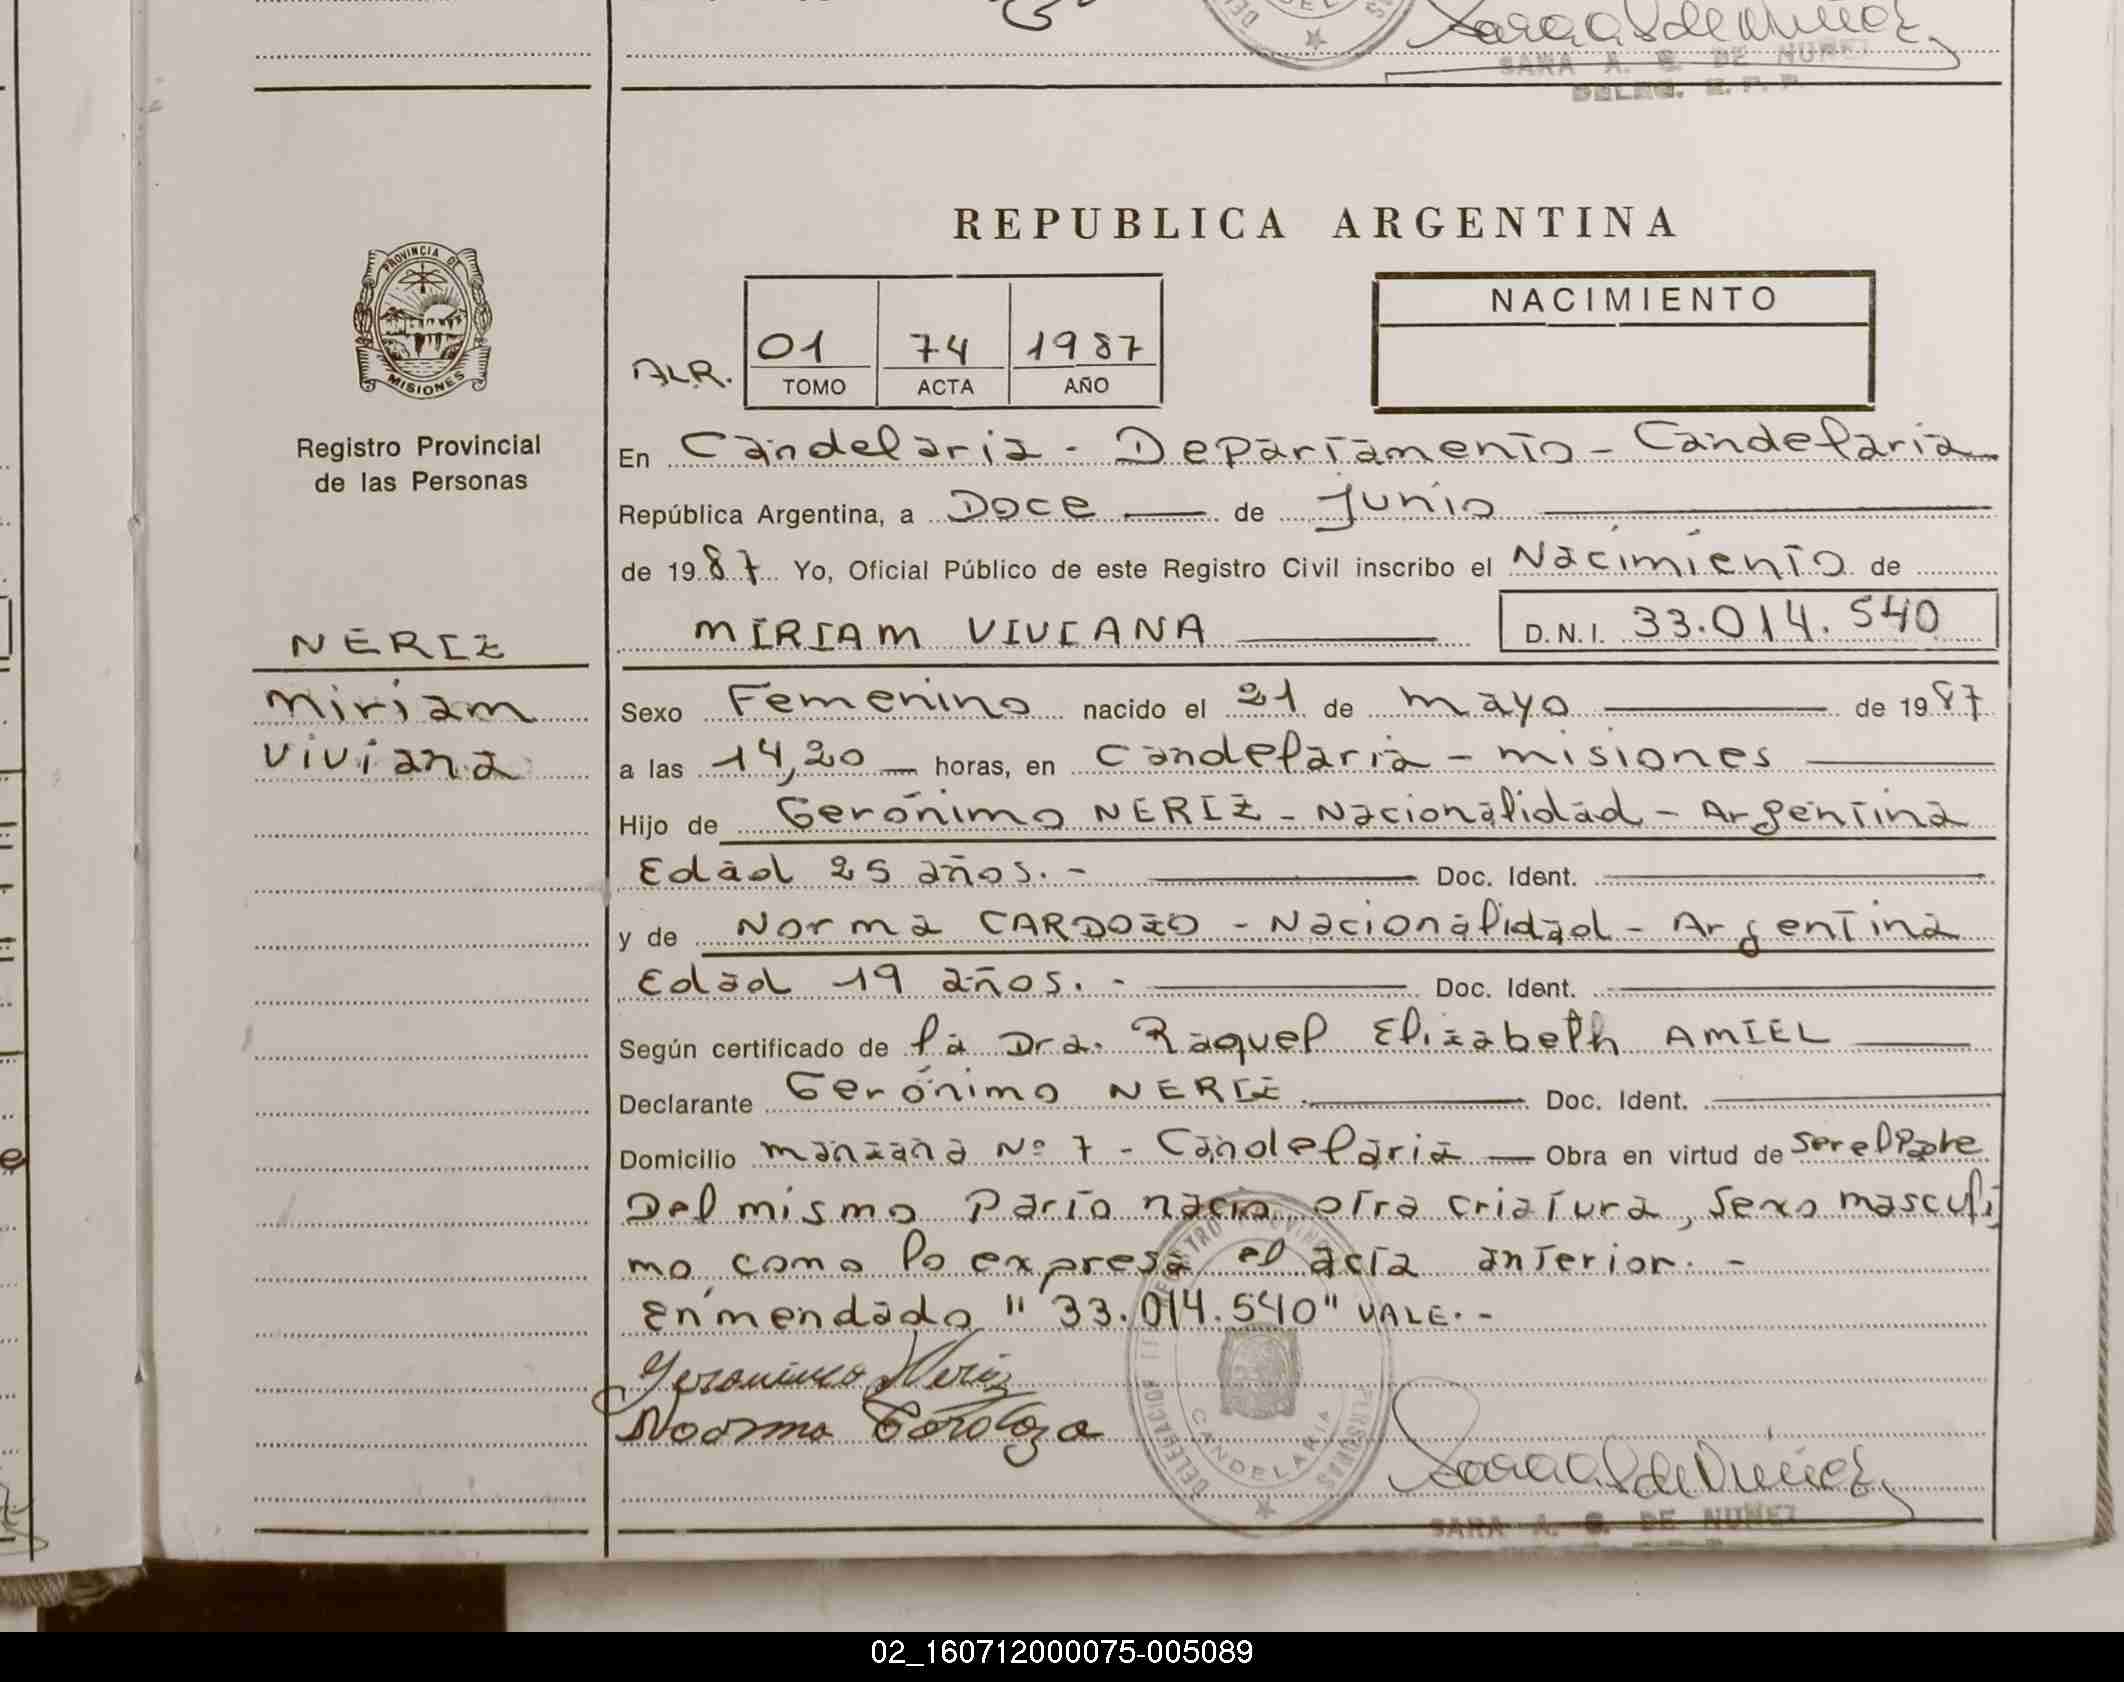 SARA A. S. DE NUÑEZ
DELEG. R. P. P.
REPUBLICA ARGENTINA
PROVINCIA DE
MISIONES
Registro Provincial
de las Personas
NACIMIENTO
ALR.
01 74 1987
TOMO ACTA AÑO
En Candelaria - Departamento - Candelaria
República Argentina, a Doce de junio
de 1987 Yo, Oficial Público de este Registro Civil inscribo el Nacimiento de
MIRIAM VIVIANA D.N.I. 33.014.540
NERIZ
Miriam
Viviana
Sexo Femenino nacido el 21 de mayo de 1987
a las 14,20 horas, en Candelaria - misiones
Hijo de Gerónimo NERIZ - Nacionalidad - Argentina
Edad 25 años. - Doc. Ident.
y de Norma CARDOZO - Nacionalidad - Argentina
Edad 19 años. - Doc. Ident.
Según certificado de la Dra. Raquel Elizabeth AMIEL
Declarante Gerónimo NERIZ Doc. Ident.
Domicilio manzana Nº 7 - Candelaria Obra en virtud de ser el Padre
Del mismo Parto nacio otra criatura, sexo masculi
no, como lo expresa el acta anterior. -
Enmendado "33.014.540" VALE. -
Geronimo Neriz
Noorma Cardoza
CANDELARIA
SARA A. S. DE NUÑEZ
02_160712000075-005089